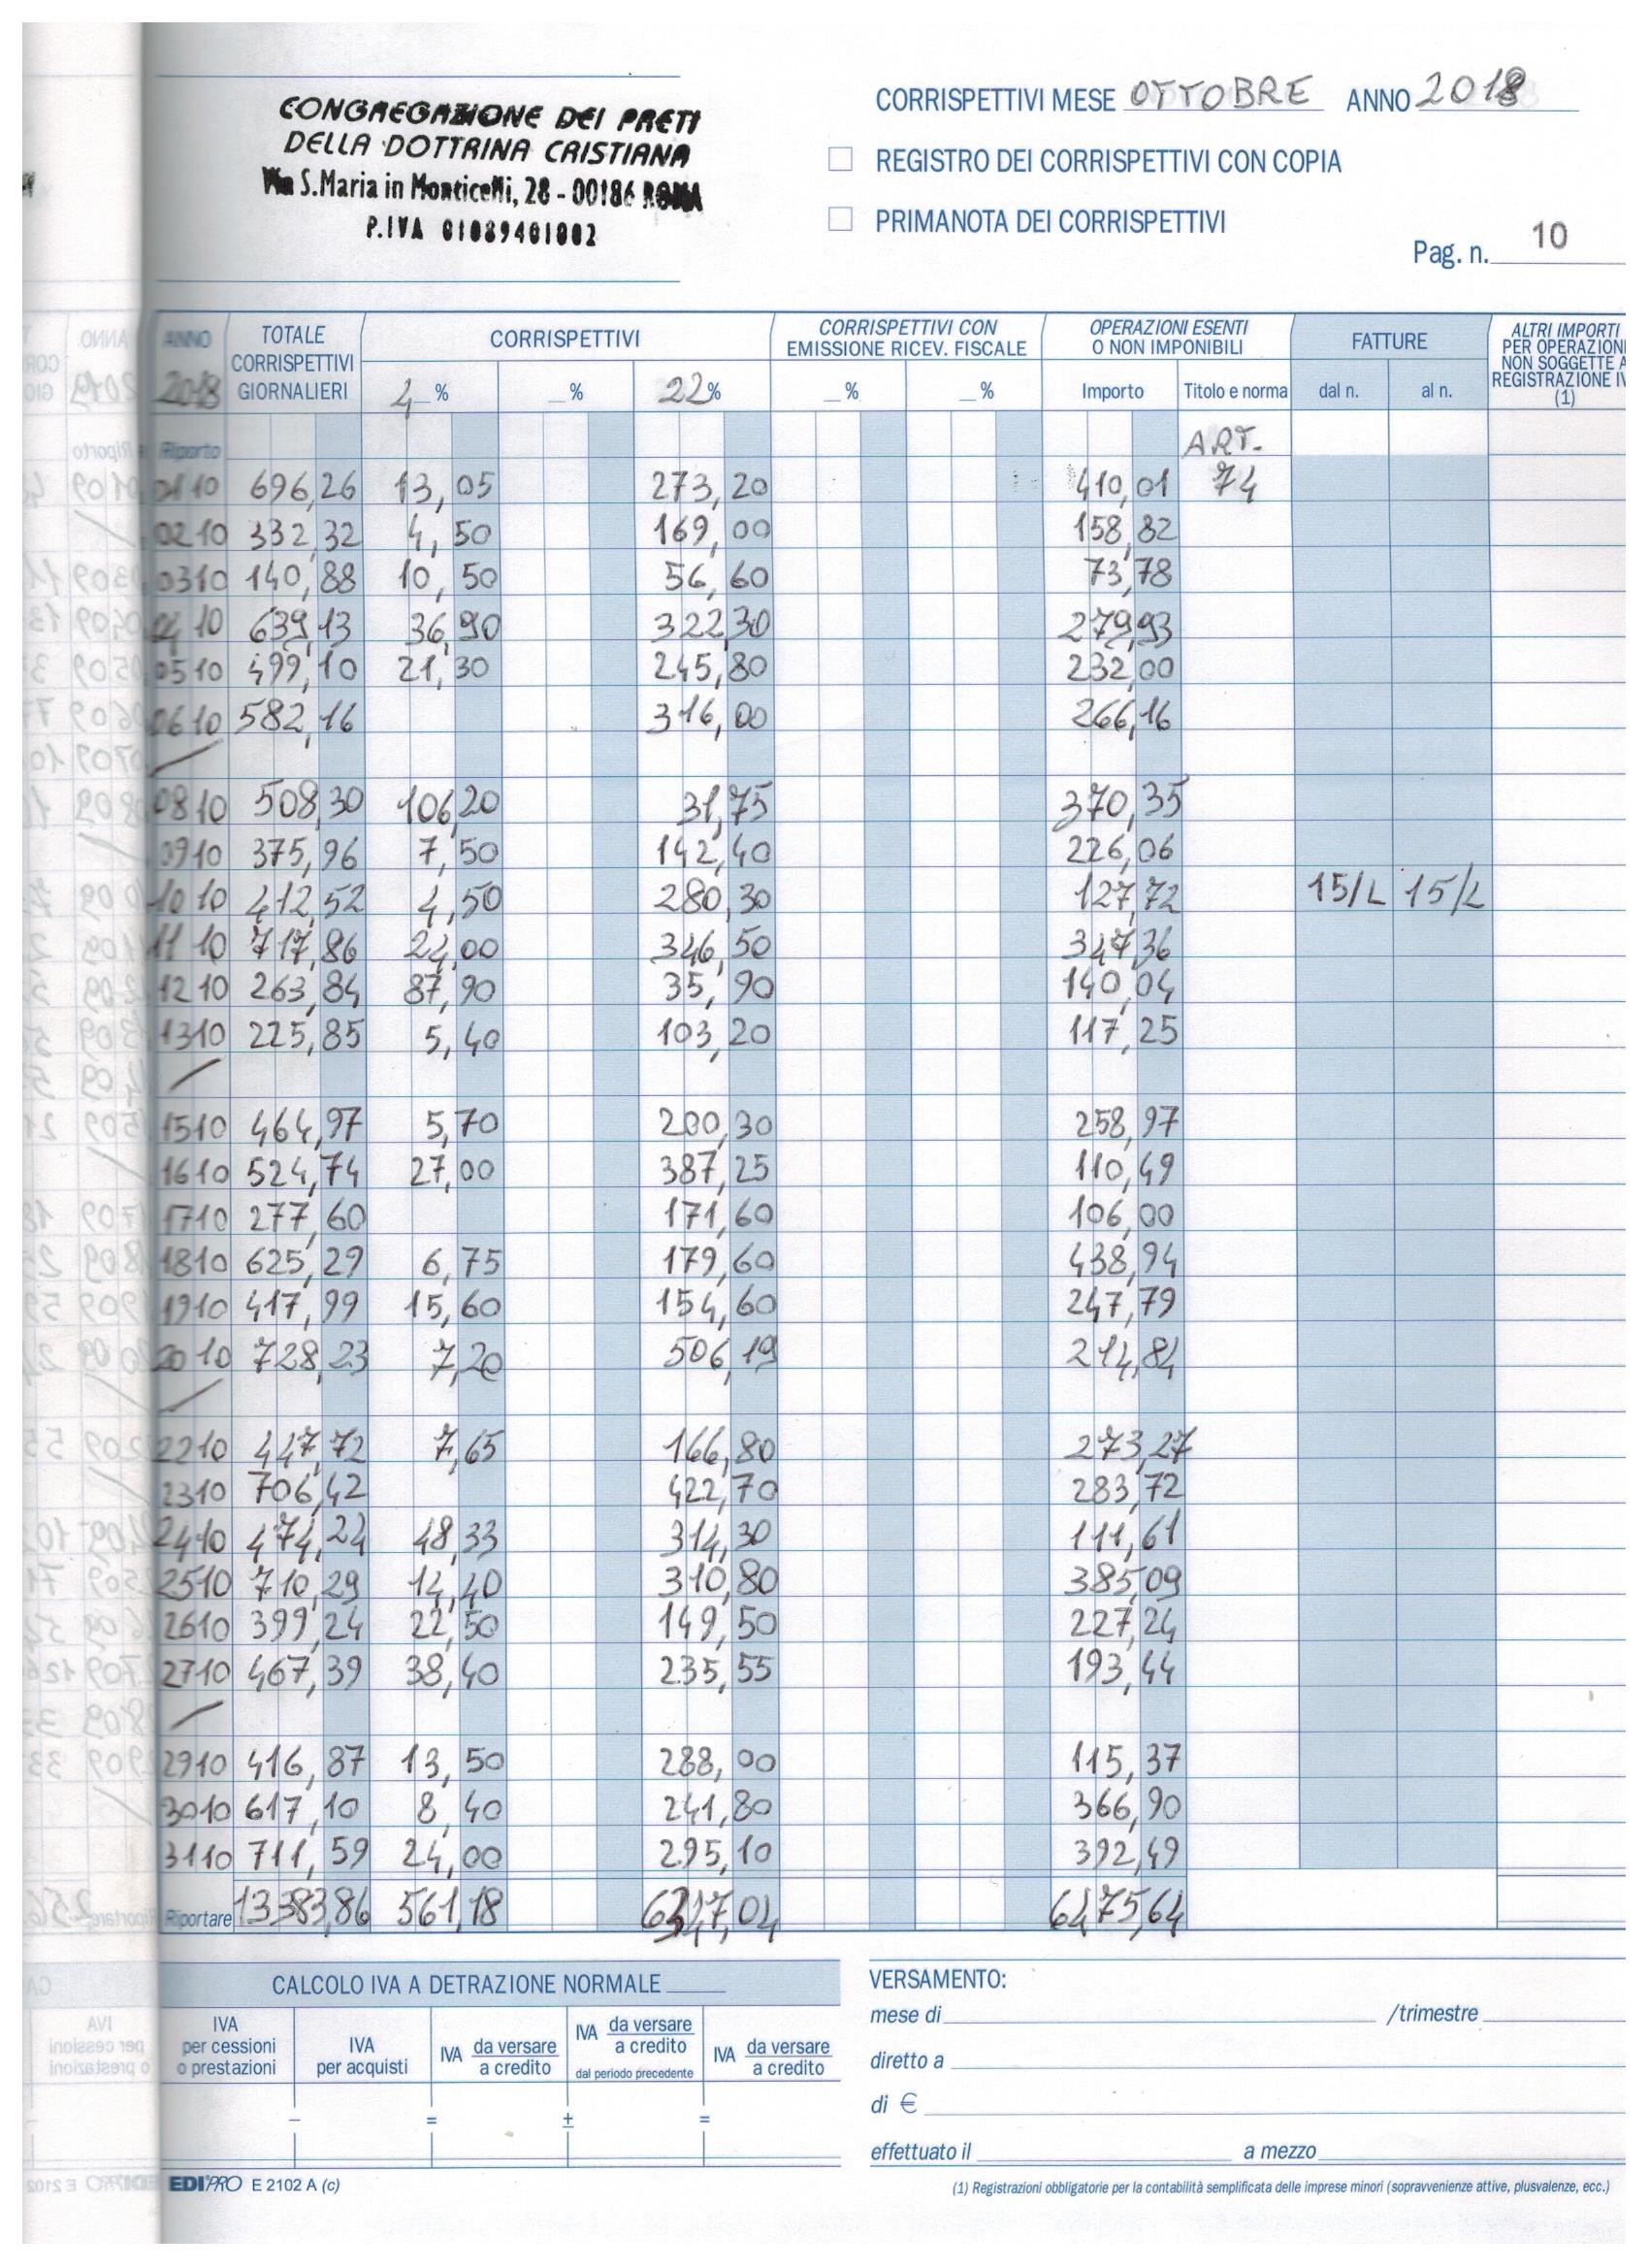 CONGREGAZIONE DEI PRETI
DELLA DOTTRINA CRISTIANA
Via S.Maria in Monticelli, 28 - 00186 ROMA
P.IVA 01089401002
CORRISPETTIVI MESE OTTOBRE ANNO 2018
REGISTRO DEI CORRISPETTIVI CON COPIA
PRIMANOTA DEI CORRISPETTIVI
Pag. n. 10
ANNO 2018 TOTALE CORRISPETTIVI GIORNALIERI CORRISPETTIVI CORRISPETTIVI CON EMISSIONE RICEV. FISCALE OPERAZIONI ESENTI O NON IMPONIBILI FATTURE ALTRI IMPORTI PER OPERAZIONI NON SOGGETTE A REGISTRAZIONE IV (1)
4 % _ % 22 % _ % _ % Importo Titolo e norma dal n. al n.
Riporto ART.
01 10 696,26 13,05 273,20 410,01 74
02 10 332,32 4,50 169,00 158,82
03 10 140,88 10,50 56,60 73,78
04 10 639,13 36,90 322,30 279,93
05 10 499,10 21,30 245,80 232,00
06 10 582,16 316,00 266,16
08 10 508,30 106,20 31,75 370,35
09 10 375,96 7,50 142,40 226,06
10 10 412,52 4,50 280,30 127,72 15/L 15/L
11 10 717,86 24,00 346,50 347,36
12 10 263,84 87,90 35,90 140,04
13 10 225,85 5,40 103,20 117,25
15 10 464,97 5,70 200,30 258,97
16 10 524,74 27,00 387,25 110,49
17 10 277,60 171,60 106,00
18 10 625,29 6,75 179,60 438,94
19 10 417,99 15,60 154,60 247,79
20 10 728,23 7,20 506,19 214,84
22 10 447,72 7,65 166,80 273,27
23 10 706,42 422,70 283,72
24 10 474,24 48,33 314,30 111,61
25 10 710,29 14,40 310,80 385,09
26 10 399,24 22,50 149,50 227,24
27 10 467,39 38,40 235,55 193,44
29 10 416,87 13,50 288,00 115,37
30 10 617,10 8,40 241,80 366,90
31 10 711,59 24,00 295,10 392,49
Riportare 13383,86 561,18 6347,04 6475,64
CALCOLO IVA A DETRAZIONE NORMALE
IVA per cessioni o prestazioni IVA per acquisti IVA da versare a credito IVA da versare a credito dal periodo precedente IVA da versare a credito
– = ± =
VERSAMENTO:
mese di /trimestre
diretto a
di €
effettuato il a mezzo
EDIPRO E 2102 A (c)
(1) Registrazioni obbligatorie per la contabilità semplificata delle imprese minori (sopravvenienze attive, plusvalenze, ecc.)